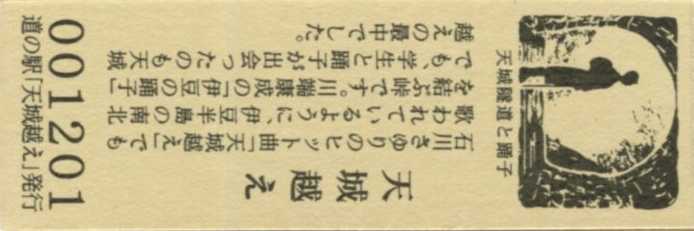 天城隧道と踊子
天城越え
石川さゆりのヒット曲「天城越え」でも
歌われているように、伊豆半島の南北
を結ぶ峠です。川端康成の「伊豆の踊子」
でも、学生と踊子が出会ったのも天城
越えの最中でした。
001201
道の駅「天城越え」発行